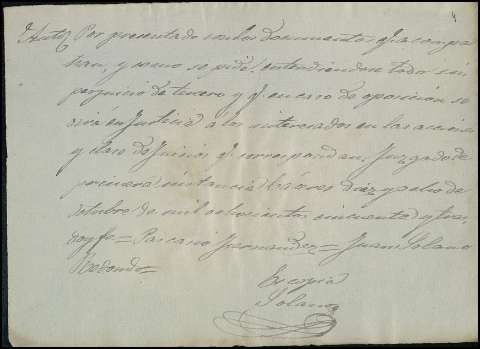 Auto Por presentado con los documentos q. acompa
ñan, y como se pide, entendiendose todo sin
perjuicio de tercero y q. en caso de oposicion se
oirá en Justicia a los interesados en las acciones
y clase de Juicios q. correspondan. Juzgado de
primera instancia diez y ocho de
octubre de mil ochocientos cincuenta y tres
doy fe = Pascacio Fernandez = Juan Solano
Redondo =
Es copia
Solano